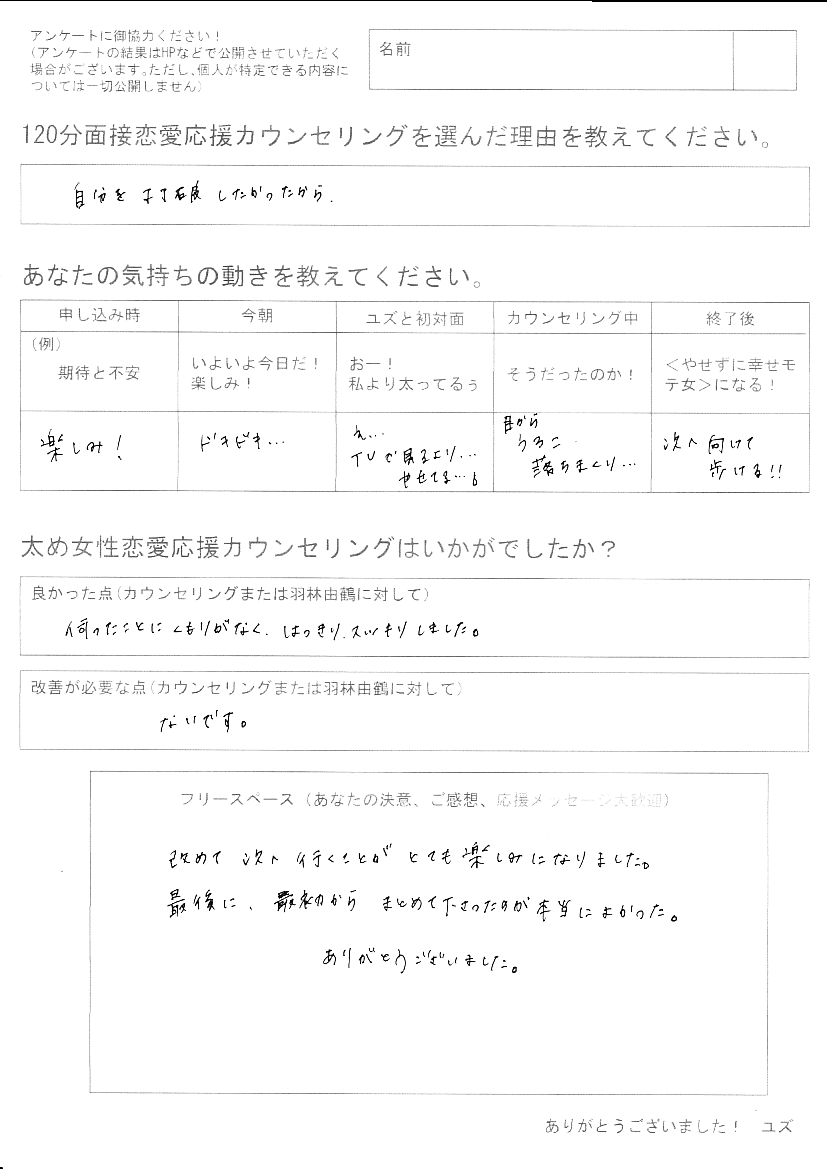 アンケートに御協力ください！
（アンケートの結果はHPなどで公開させていただく
場合がございます。ただし、個人が特定できる内容に
ついては一切公開しません）
名前
120分面接恋愛応援カウンセリングを選んだ理由を教えてください。
自分を打破したかったから.
あなたの気持ちの動きを教えてください。
申し込み時 今朝 ユズと初対面 カウンセリング中 終了後
（例）
期待と不安
いよいよ今日だ！
楽しみ！
おー！
私より太ってるぅ
そうだったのか！
＜やせずに幸せモ
テ女＞になる！
楽しみ！
ドキドキ…
え…
TVで見るより…
やせてる…。
目から
うろこ
落ちまくり…
次へ向けて
歩ける！！
太め女性恋愛応援カウンセリングはいかがでしたか？
良かった点（カウンセリングまたは羽林由鶴に対して）
伺ったことにくもりがなく、はっきり、スッキリしました。
改善が必要な点（カウンセリングまたは羽林由鶴に対して）
ないです。
フリースペース（あなたの決意、ご感想、応援メッセージ大歓迎）
改めて次へ行くことがとても楽しみになりました。
最後に、最初からまとめて下さったのが本当によかった。
ありがとうございました。
ありがとうございました！　ユズ